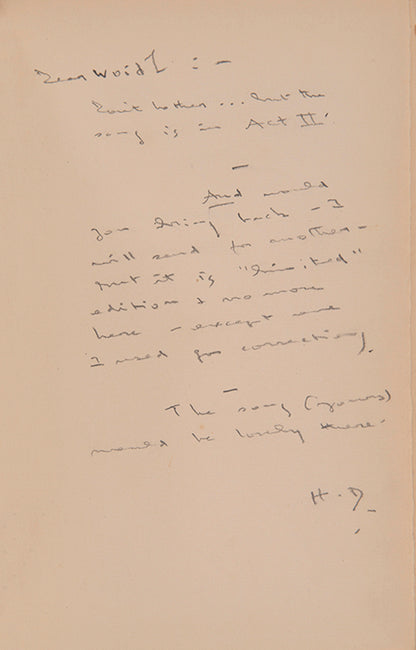 Dear :-
Don't bother ... but the
song is in Act II.
—
And would
you bring back - I
will send for another -
but it is "limited"
edition & no more
here - except one
I used for correcting.
—
The song (yours)
would be lovely there.
H.D.